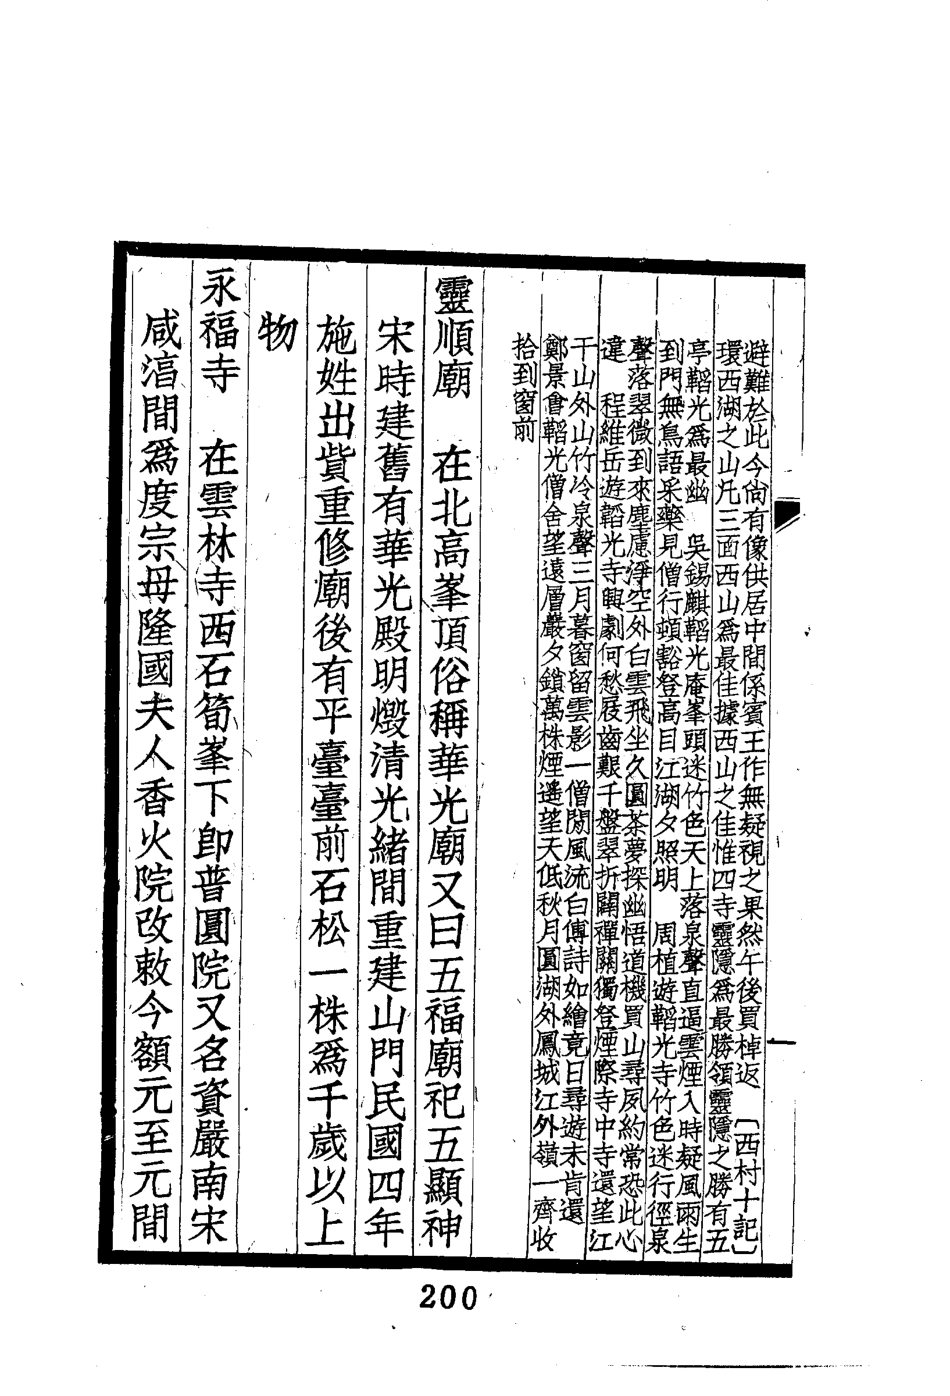 避難於此今尙有像供居中間係賓王作無疑視之果然午後買棹返　〔西村十記〕
環西湖之山凡三面西山爲最佳據西山之佳惟四寺靈隱爲最勝領靈隱之勝有五
亭韜光爲最幽　吳錫麒韜光庵峯頭迷竹色天上落泉聲直逼雲煙入時疑風雨生
到門無鳥語采藥見僧行頓豁登高目江湖夕照明　周植遊韜光寺竹色迷行徑泉
聲落翠微到來塵慮淨空外白雲飛坐久圓茶夢探幽悟道機買山尋夙約常恐此心
違　程維岳遊韜光寺興劇何愁屐齒艱千盤翠折關禪關獨登煙際寺中寺還望江
干山外山竹冷泉聲三月暮窗留雲影一僧閒風流白傅詩如繪竟日尋遊未肯還
鄭景會韜光僧舍望遠層巖夕鎖萬株煙遙望天低秋月圓湖外鳳城江外嶺一齊收
拾到窗前
靈順廟　在北高峯頂俗稱華光廟又曰五福廟祀五顯神
宋時建舊有華光殿明燬清光緒間重建山門民國四年
施姓出貲重修廟後有平臺臺前石松一株爲千歲以上
物
永福寺　在雲林寺西石筍峯下卽普圓院又名資嚴南宋
咸淳間爲度宗母隆國夫人香火院改敕今額元至元間
200